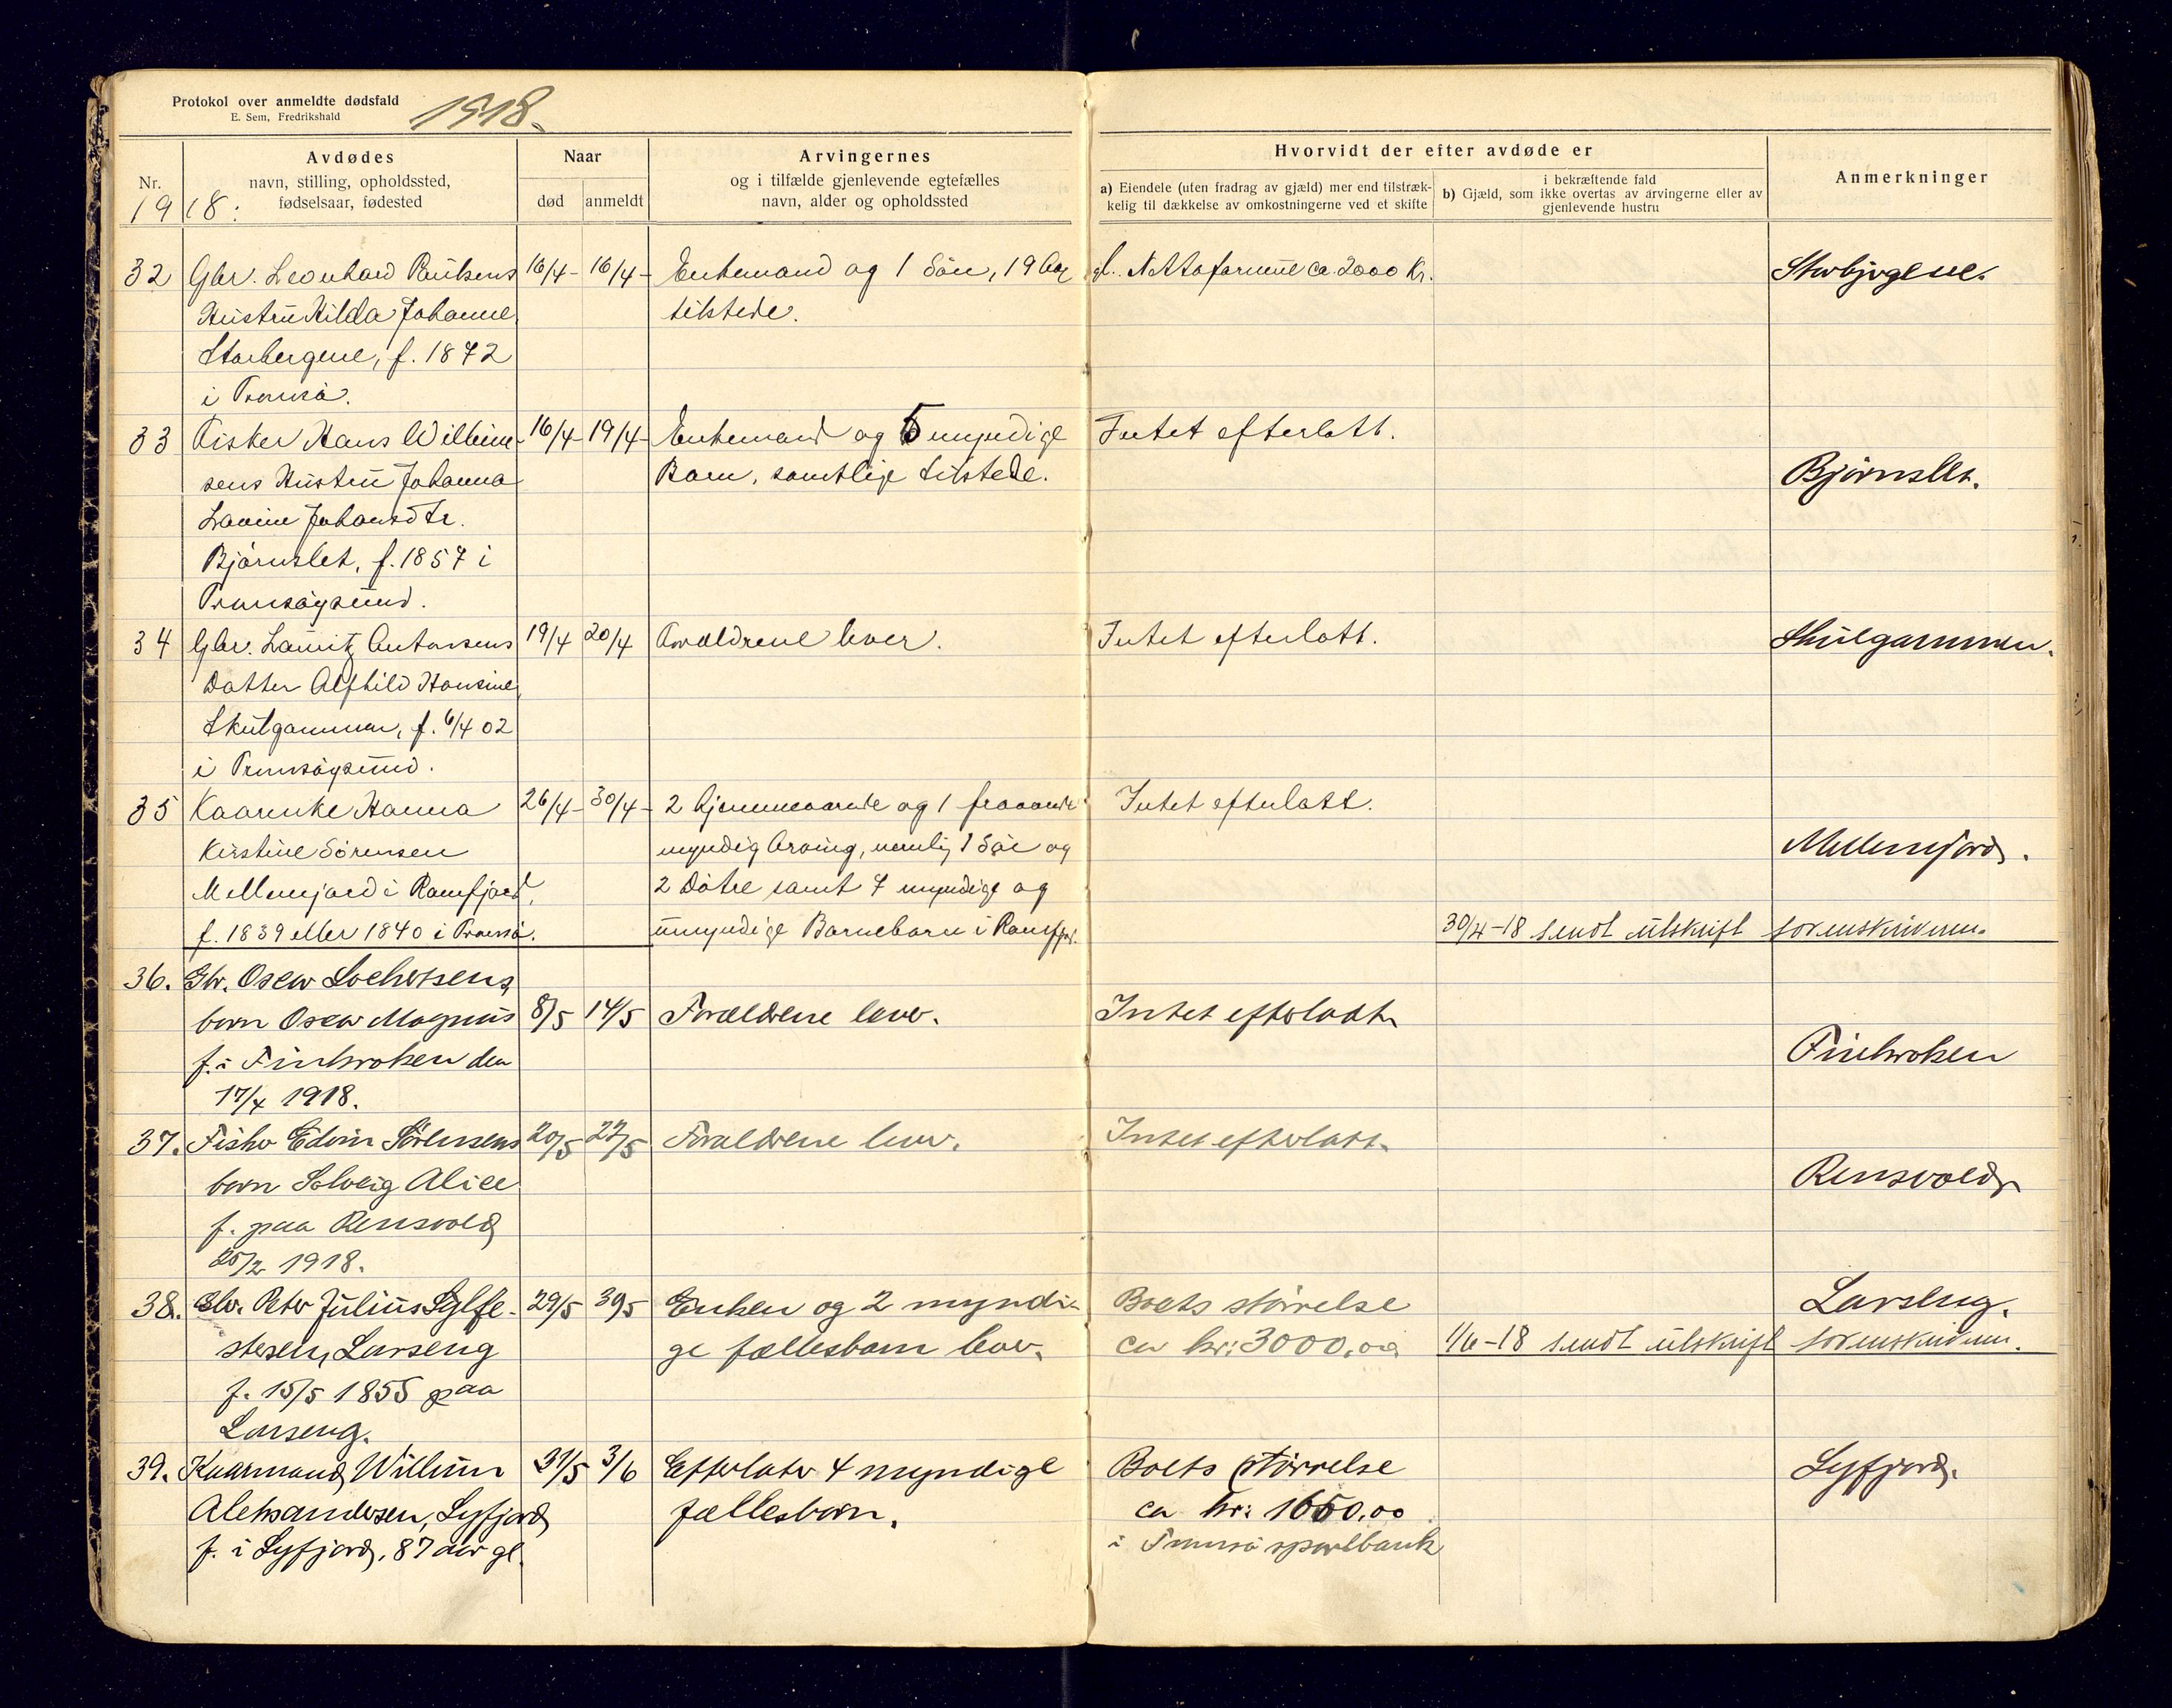 Protokol over anmeldte dødsfald
E. Sem, Fredrikshald
1918.
Nr.
1918:
Avdødes
navn, stilling, opholdssted,
fødselsaar, fødested
Naar
død
anmeldt
Arvingernes
og i tilfælde gjenlevende egtefælles
navn, alder og opholdssted
Hvorvidt der efter avdøde er
a) Eiendele (uten fradrag av gjæld) mer end tilstræk-
kelig til dækkelse av omkostningerne ved et skifte
i bekræftende fald
b) Gjæld, som ikke overtas av arvingerne eller av
gjenlevende hustru
Anmerkninger
32 Gbr. Leonhard Paulsens 16/4- 16/4- Enkemand og 1 Sön, 19 Aar gl. Nettoformue ca 2000 Kr. Storbjrgene.
Hustru Hilda Johanne tilstede.
Storbergene, f. 1872
i Tromsö.
33 Fisker Hans Wilhelm- 16/4- 19/4- Enkemand og 5 myndige Intet efterlatt.
sens Hustru Johanna Barn, samtlige tilstede. Bjørnslet.
Lavine Johansdtr.
Bjørnslet, f. 1857 i
Tromsöysund.
34 Gbr. Lauritz Antonsens 19/4 20/4 Forældrene lever. Intet efterlatt. Skulgammen.
Datter Alfhild Hansine
Skulgammen, f. 6/4 02
i Tromsöysund.
35 Kaarenke Hanna 26/4- 30/4- 2 hjemmeværende og 1 fraværende Intet efterlatt.
Kirstine Sörensen myndig Arving, nemlig 1 Sön og Mellemjord.
Mellemjord i Ramfjord, 2 Døtre samt 7 myndige og
f. 1839 eller 1840 i Tromsö. umyndige Barnebarn i Ramfjord. 30/4-18 sendt utskrift sorenskriveren.
36. Gbr. Oscar Lockertsens
barn Oscar Magnus 8/5 14/5 Forældrene lever. Intet efterladt.
f. i Finkroken den Finkroken
17/4 1918.
37. Fisker Edvin Sörensens 20/5 22/5 Forældrene lever. Intet efterlatt.
barn Solveig Alice Rensvold
f. paa Rensvold
25/2 1918.
38. Gbr. Peter Julius Sylfe- 29/5 30/5 Enken og 2 myndi- Boets størrelse Larseng.
stersen, Larseng ge fællesbarn lever. ca kr: 3000,00 1/6-18 sendt utskrift sorenskriveren.
f. 15/5 1855 paa
Larseng.
39. Kaarmand Willum 31/5 3/6 Efterlater 4 myndige Boets størrelse Lyfjord.
Aleksandersen, Lyfjord fællesbörn. ca kr: 1650,00
f. i Lyfjord, 87 aar gl. i Tromsö sparebank